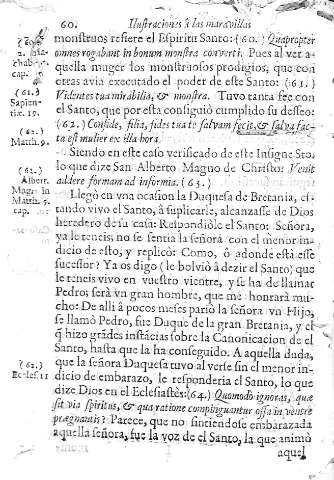 60. Ilustraciones à las maravillas
monstruos refiere el Espiritu Santo: (60.) Quapropter
omnes rogabant in bonum monstra converti. Pues al ver a-
quella muger los monstruosos prodigios, que con
otras avia executado el poder de este Santo: (61.)
Videntes tua mirabilia, & monstra. Tuvo tanta fee con
el Santo, que por esta consiguiò cumplido su deseo:
(62.) Confide, filia, fides tua te salvam fecit, & salva fac-
ta est mulier ex illa hora.
Siendo en este caso verificado de este Insigne Sto,
lo que dize San Alberto Magno de Christo: Venit
addere formam ad informia. (63.)
Llegò en vna ocasion la Duquesa de Bretania, es-
tando vivo el Santo, à suplicarle, alcanzasse de Dios
heredero de su casa: Respondiòle el Santo: Señora,
ya le teneis; no se sentia la señora con el menor in-
dicio de esto, y replicò: Como, ò adonde està esse
sucessor? Ya os digo (le bolviò à dezir el Santo) que
le teneis vivo en vuestro vientre, y se ha de llamar
Pedro, serà vn gran hombre, que me honrarà mu-
cho: De alli à pocos meses pariò la señora vn Hijo,
se llamò Pedro, fue Duque de la gran Bretania, y el
q̃ hizo grādes instācias sobre la Canonicacion de el
Santo, hasta que la ha conseguido. A aquella duda,
que la señora Duquesa tuvo al verse sin el menor in-
dicio de embarazo, le responderia el Santo, lo que
dize Dios en el Eclesiastès: (64.) Quomodo ignoras, quæ
sit via spiritus, & qua ratione compinguantur ossa in ventre
prægnantis? Parece, que no sintiendose embarazada
aquella señora, fue la voz de el Santo, la que animò
aquel
(60.)
2.
chab.
cap.
(61.)
Sapien-
tiæ. 19.
(62.)
Matth. 9.
(63.)
Albert.
Mag. in
Matth.
cap.
Eccles. 11